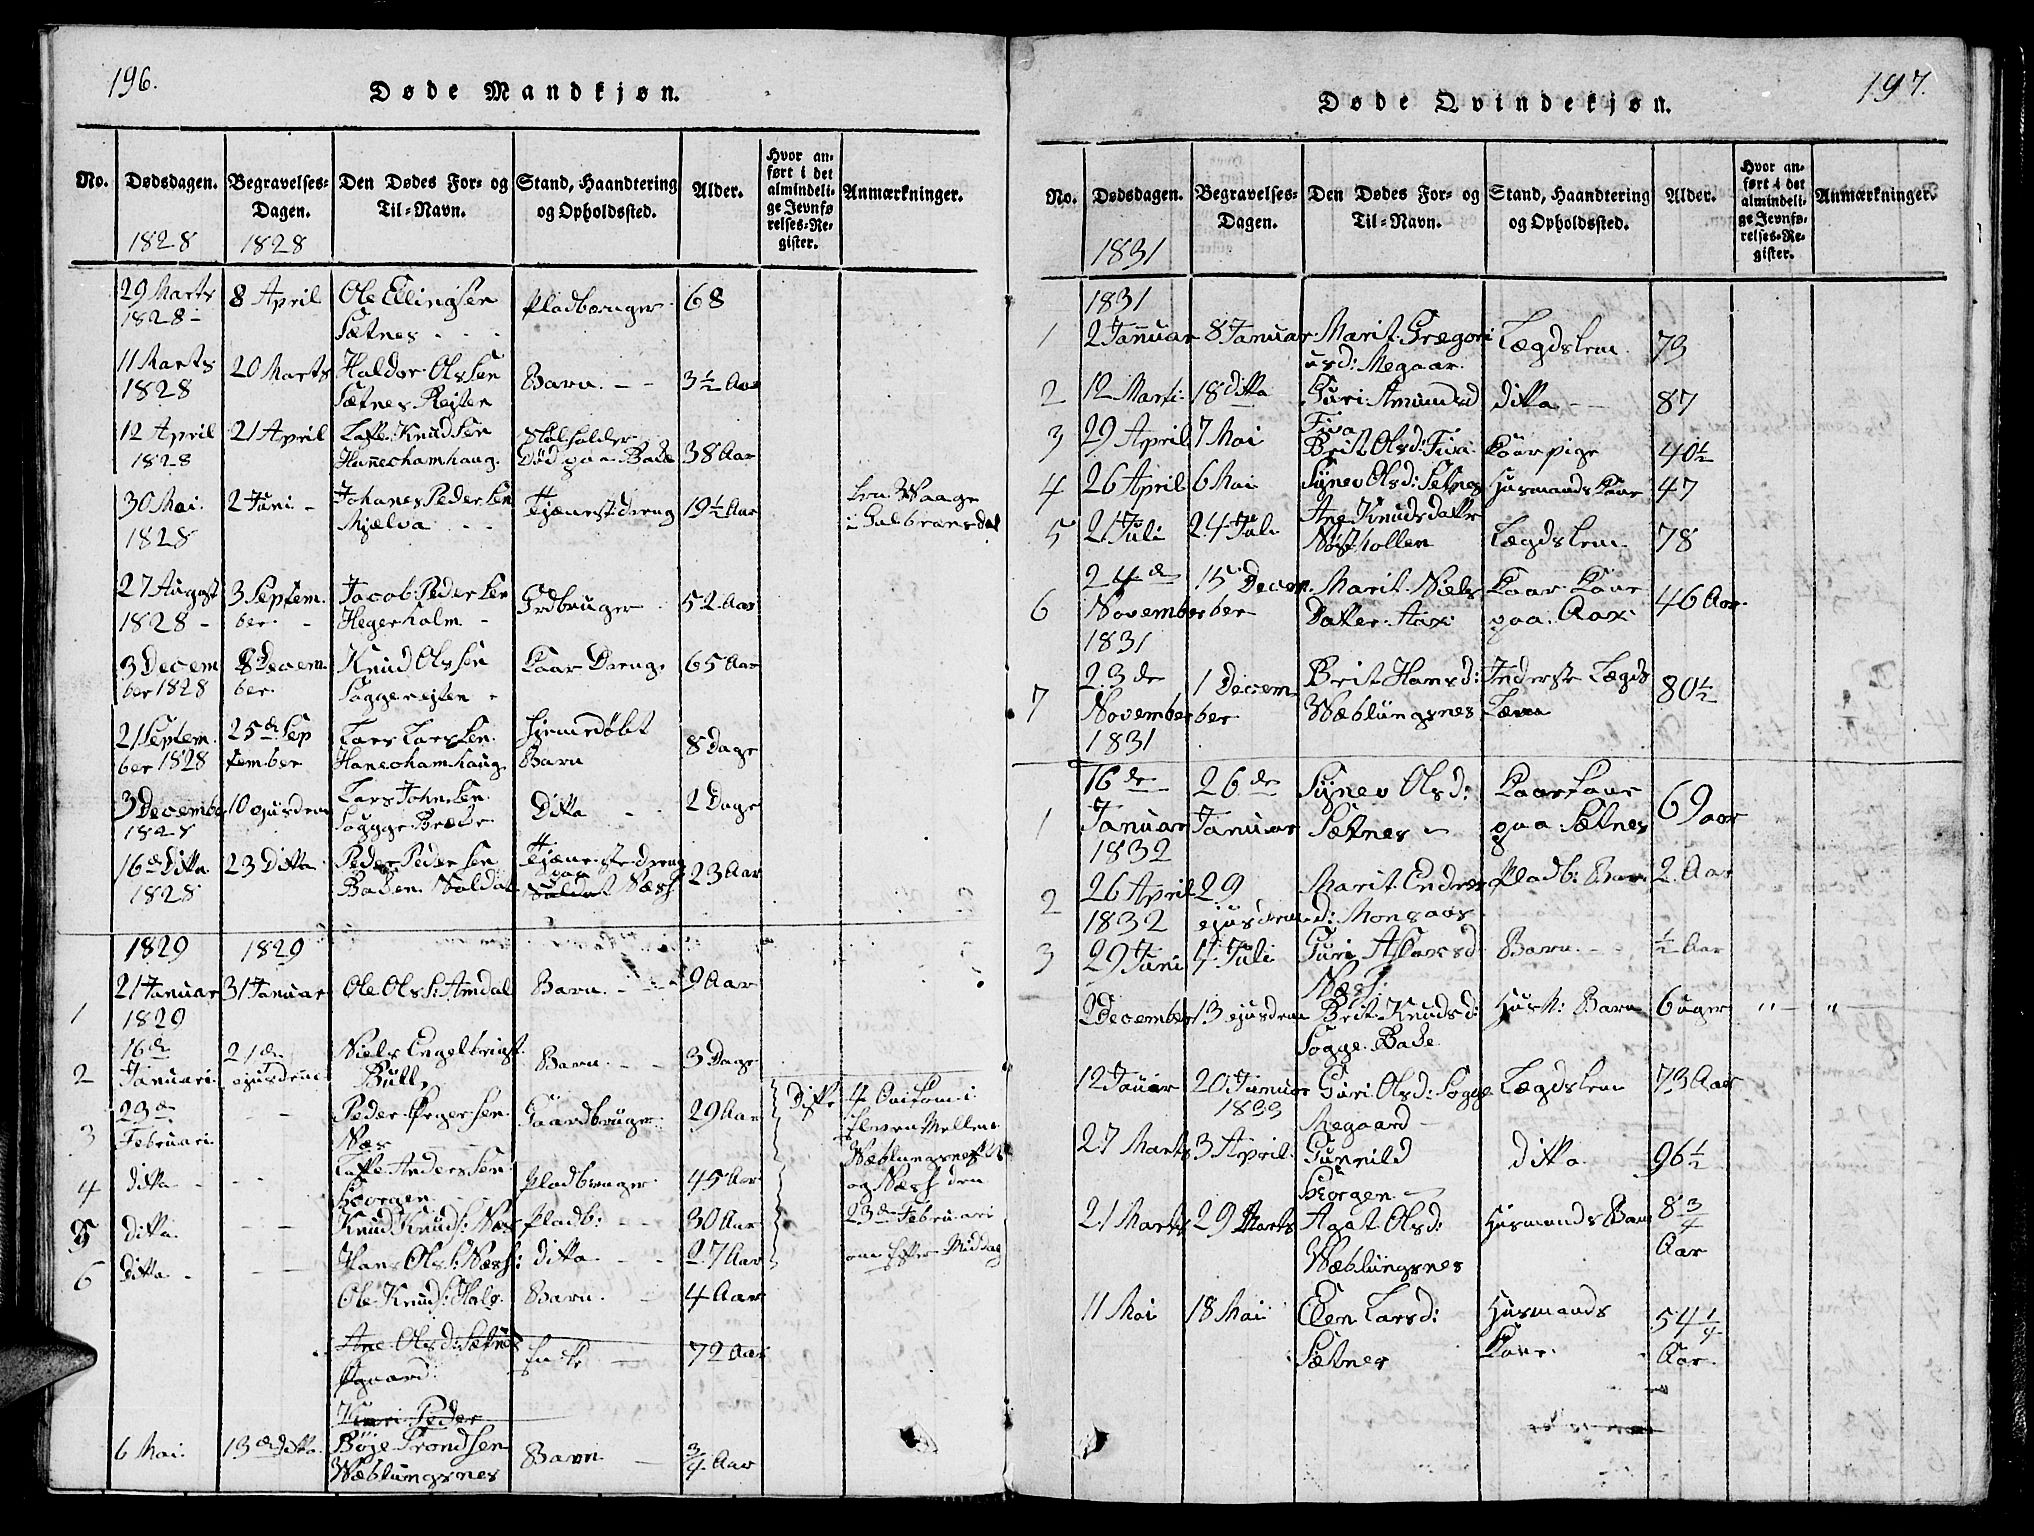 196.
Døde Mandkjøn.
No.
Dødsdagen.
1828
Begravelses-
Dagen.
1828
Den Dødes For- og
Til-Navn.
Stand, Haandtering
og Opholdssted.
Alder.
Hvor an-
ført i det
almindeli-
ge Jevnfø
relses-Re-
gister.
Anmærkninger.
29 Marts
1828 -
8 April
Ole Ellingsen
Sætnes - -
Pladbruger
68
11 Marts
1828
20 Marts
Haldor Olssen
Sætnes Rejten
Barn. - -
3½ Aar
12 April
1828
21 April
Knudsen
Hannechamhaug.
Død paa
38 Aar
30 Mai.
1828
2 Juni -
Johanes Pedersen
Mjelva - -
Tjænestdreng
19½ Aar
27 August
1828 -
3 Septem-
ber. -
Jacob Pedersen
Hegerholm -
Grdbruger
52 Aar
3 Decem
ber 1828
8 Decem-
ber.
Knud Olssen
Soggerejten -
Kaar Dreng.
65 Aar
21 Septem.
ber 1828
25de Sep
tember
Lars Larssen.
Hanechamhaug
Hjemedøbt
Barn
8 Dage
3 Decembe
1828
10 ejusdem
Lars Johnsen.
Sogge Bræke
Ditta -
2 Dage
16de Ditta
1828
23 Ditta
Peder Pedersen
Baden Soldat
Tjænestedreng
paa
Soldat Næss
23 Aar
1829
1829
1
21 Januar
1829
31 Januar
Ole Olss: Amdal
Barn. - -
9 Aar
2
16de
Januari.
21de
ejusdem
Niels Engelbrigt
Bull,
Barn. - -
3 Dage
3
23de
Februari
- -
Peder
Næs
Gaardbruger
29 Aar
4
ditta -
- -
Anderssen
Pladbruger
45 Aar
5
ditta.
- -
Knud Knuds: Næs
Pladb: - -
30 Aar
6
ditta -
- -
Hans Olss: Næss:
ditta - -
27 Aar
Ditte
Mellem
Wæblungsnes
og Næss den
23de Februari
om Efter Middag
Ole Knuds: Hole
Barn. -
4 Aar
Ane Olsd: Sætnes
Enke -
72 Aar
Kari Peder
6 Mai.
13de ditto.
Trondsen
Wæblungsnes
Barn -
¾ Aar
197.
Døde Qvindekjøn.
No.
Dødsdagen.
1831
Begravelses-
Dagen.
Den Dødes For- og
Til-Navn.
Stand, Haandtering
og Opholdssted.
Alder.
Hvor an-
ført i det
almindeli-
ge Jevnfø-
relses-Re-
gister.
Anmærkninger.
1831
1
2 Januar
8 Januar
Marit Gregori
usd: Megaar.
Lægdslem
73
2
12 Marti:
18 ditta
Guri Amundsd
Fiva
ditta -
87
3
29 April
7 Mai
Brit Olsd: Fiva
Kaarpige
40½
4
26 April
6 Mai
Synev Olsd: Sætnes
Husmands Kone
47
5
21 Juli
24 Juli
Ane Knudsdatter
Nøsthollen
Lægdslem
78
6
24de
November
1831
15 Decem-
ber
Marit Niels
Datter. Aax:
Kaar Kone
paa. Aax:
46 Aar.
7
23de
November
1831
1 Decem-
ber
Brit Hansd:
Wæblungsnes
Inderste Lægds
Lem
80½
1
16de
Januar
1832
26de
Januar
Synev Olsd:
Sætnes -
Kaarkone
paa Sætnes
69 aar
2
26 April
1832
29
ejusdem
Marit Endres
d: Mongaas
Pladb: Barn
2 Aar
3
29 Juni
7 Juli
Guri Aslaksd
Næss:
Barn - -
½ Aar
2 December
13 ejusdem
Brit Knudsd:
Sogge Bade
Husm: Barn
6 uger
" -
"
12 Januar
20 Januar
1833
Guri Olsd: Sogge
Megaard -
Lægdslem
73 Aar
27 Marts
3 April
Gunnild
ditta
96½
21 Marts
29 Marts
Agat Olsd:
Wæblungsnes
Husmands Barn
8¾
Aar
11 Mai
18 Mai
Elen Larsd:
Sætnes
Husmands
Kone.
54¼
Aar.